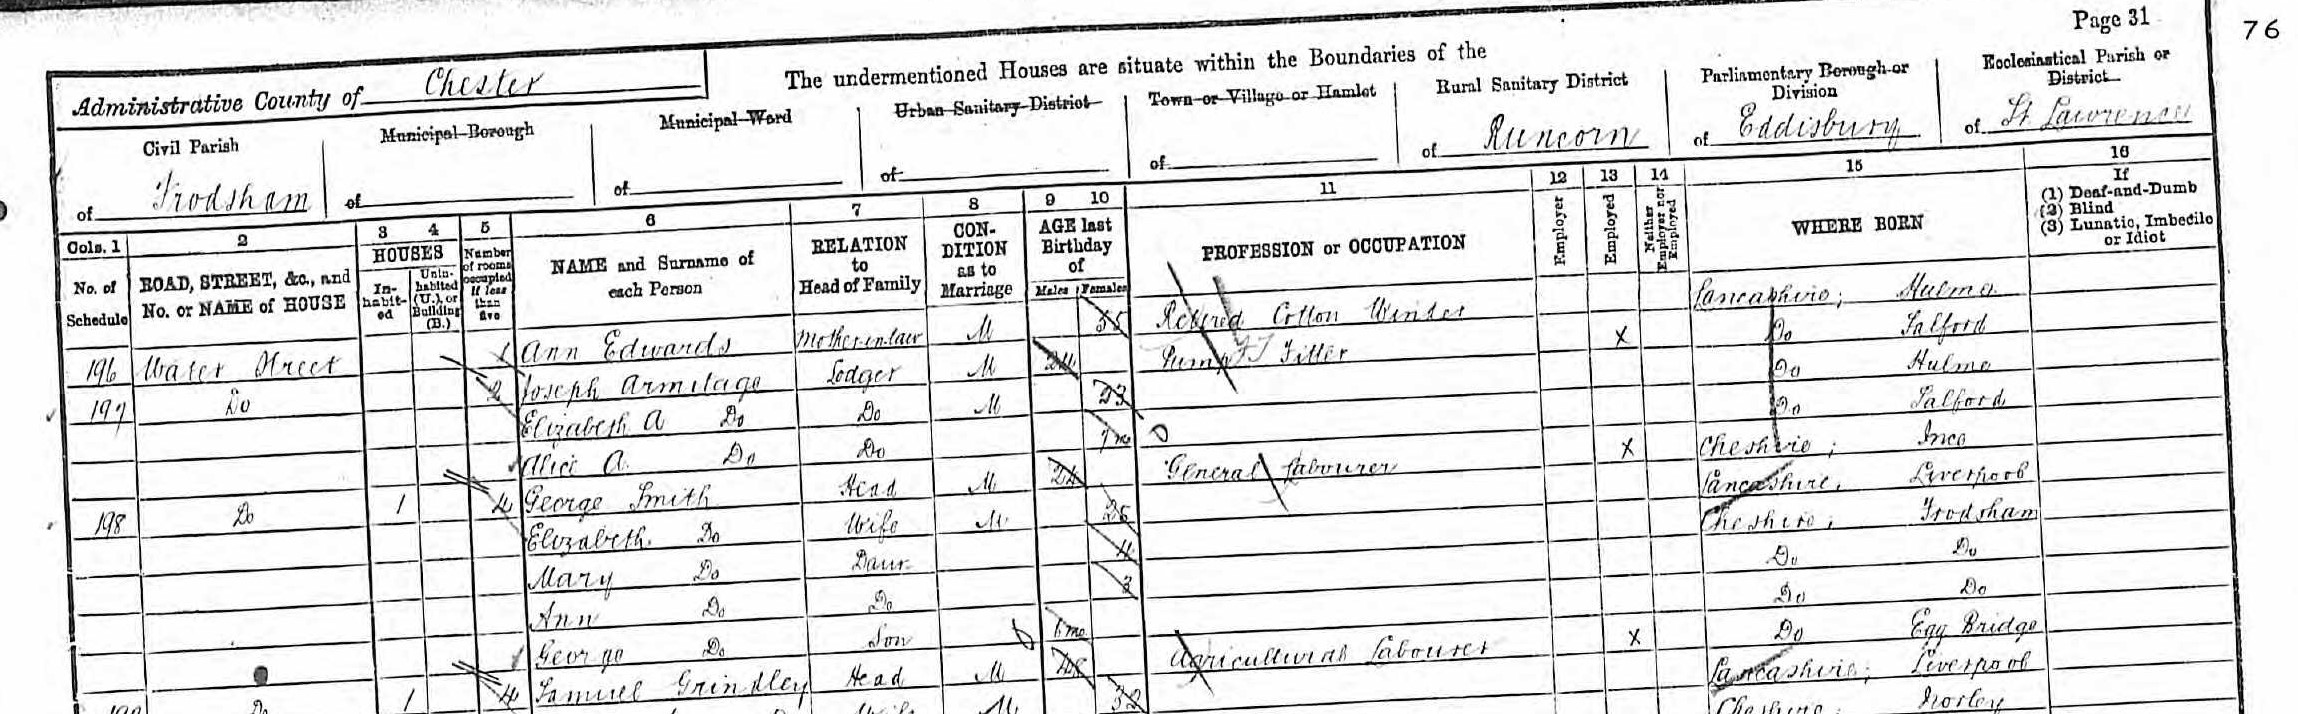 Page 31
76
Administrative County of Chester
The undermentioned Houses are situate within the Boundaries of the
Civil Parish
of Frodsham
Municipal Borough
of
Municipal Ward
of
Urban Sanitary District
of
Town or Village or Hamlet
of
Rural Sanitary District
of Runcorn
Parliamentary Borough or
Division
of Eddisbury
Ecclesiastical Parish or
District
of St Lawrence
Cols. 1
No. of
Schedule
2
ROAD, STREET, &c., and
No. or NAME of HOUSE
3 4
HOUSES
In-
habit-
ed
Unin-
habited
(U.), or
Building
(B.)
5
Number
of rooms
occupied
if less
than
five
6
NAME and Surname of
each Person
7
RELATION
to
Head of Family
8
CON-
DITION
as to
Marriage
9 10
AGE last
Birthday
of
Males Females
11
PROFESSION or OCCUPATION
12
Employer
13
Employed
14
Neither
Employer nor
Employed
15
WHERE BORN
16
If
(1) Deaf-and-Dumb
(2) Blind
(3) Lunatic, Imbecile
or Idiot
196 Water Street Ann Edwards Mother-in-law M 55 Retired Cotton Winder Lancashire; Hulme
197 Do 2 Joseph Armitage Lodger M 24 Pump Fitter X Do Salford
Elizabeth A Do Do M 23 Do Hulme
Alice A. Do Do 7mo Do Salford
198 Do 1 4 George Smith Head M 24 General Labourer X Cheshire; Ince
Elizabeth Do Wife M 25 Lancashire, Liverpool
Mary Do Daur 4 Cheshire; Frodsham
Ann Do Do 3 Do Do
George Do Son 6mo Do Do
Do 1 4 Samuel Grindley Head M 48 Agricultural Labourer X Do Egg Bridge
Wife M 32 Lancashire; Liverpool
Cheshire; Norley